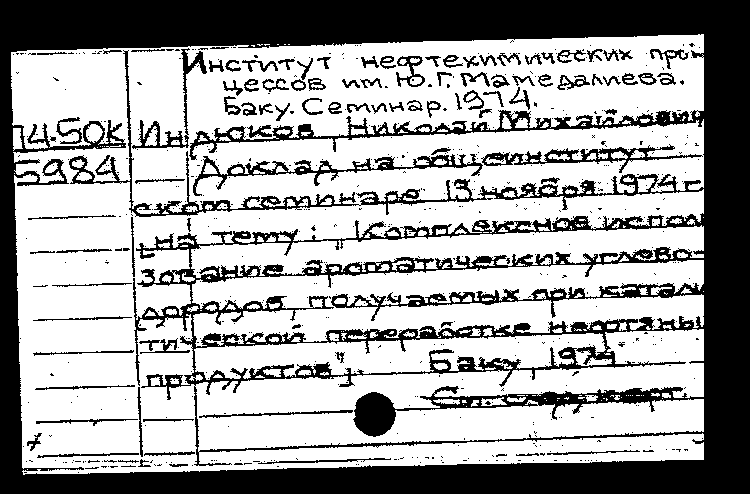 Институт нефтехимических про-
цессов им. Ю.Г. Мамедалиева.
Баку. Семинар. 1974.
74-50К Индюков, Николай Михайлович
5984 Доклад на общеинститут-
ском семинаре 13 ноября 1974 г
[на тему: „Комплексное исполь
зование ароматических углево-
дородов, получаемых при катали
тической переработке нефтяны
продуктов"]. Баку, 1974
См. след. карт.